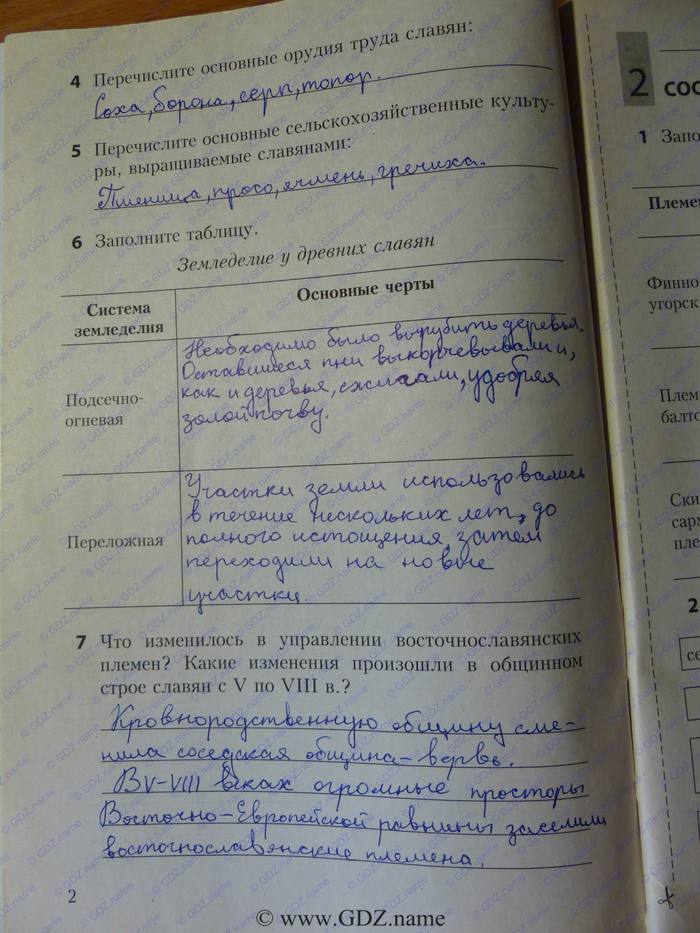 4 Перечислите основные орудия труда славян:
Соха, борона, серп, топор.
5 Перечислите основные сельскохозяйственные культу-
ры, выращиваемые славянами:
Пшеница, просо, ячмень, гречиха.
6 Заполните таблицу.
Земледелие у древних славян
Система
земледелия
Основные черты
Подсечно-
огневая
Необходимо было вырубить деревья.
Оставшиеся пни выкорчевывали и,
как и деревья, сжигали, удобряя
золой почву.
Переложная
Участки земли использовались
в течение нескольких лет, до
полного истощения, затем
переходили на новые
участки.
7 Что изменилось в управлении восточнославянских
племен? Какие изменения произошли в общинном
строе славян с V по VIII в.?
Кровнородственную общину сме-
нила соседская община - вервь.
В V-VIII веках огромные просторы
Восточно-Европейской равнины заселили
восточнославянские племена.
2
© www.GDZ.name
2 СОС
1 Запо
Племен
Финно-
угорск
Племе
балто
Ски
сарм
пле
2
се